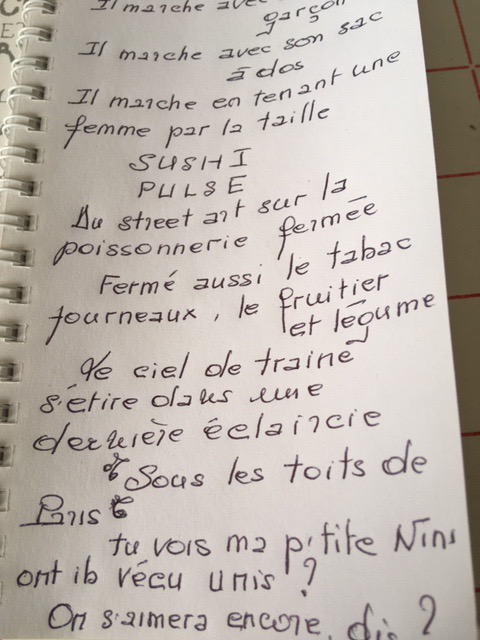 Il marche avec
garçon
Il marche avec son sac
à dos
Il marche en tenant une
femme par la taille
SUSHI
PULSE
Du street art sur la
poissonnerie fermée
Fermé aussi le tabac
journeaux, le fruitier
et légume
Le ciel de traine
s'étire dans une
dernière éclaircie
Sous les toits de
Paris
tu vois ma p'tite Nini
ont ib vécu unis ?
On s'aimera encore, dis ?